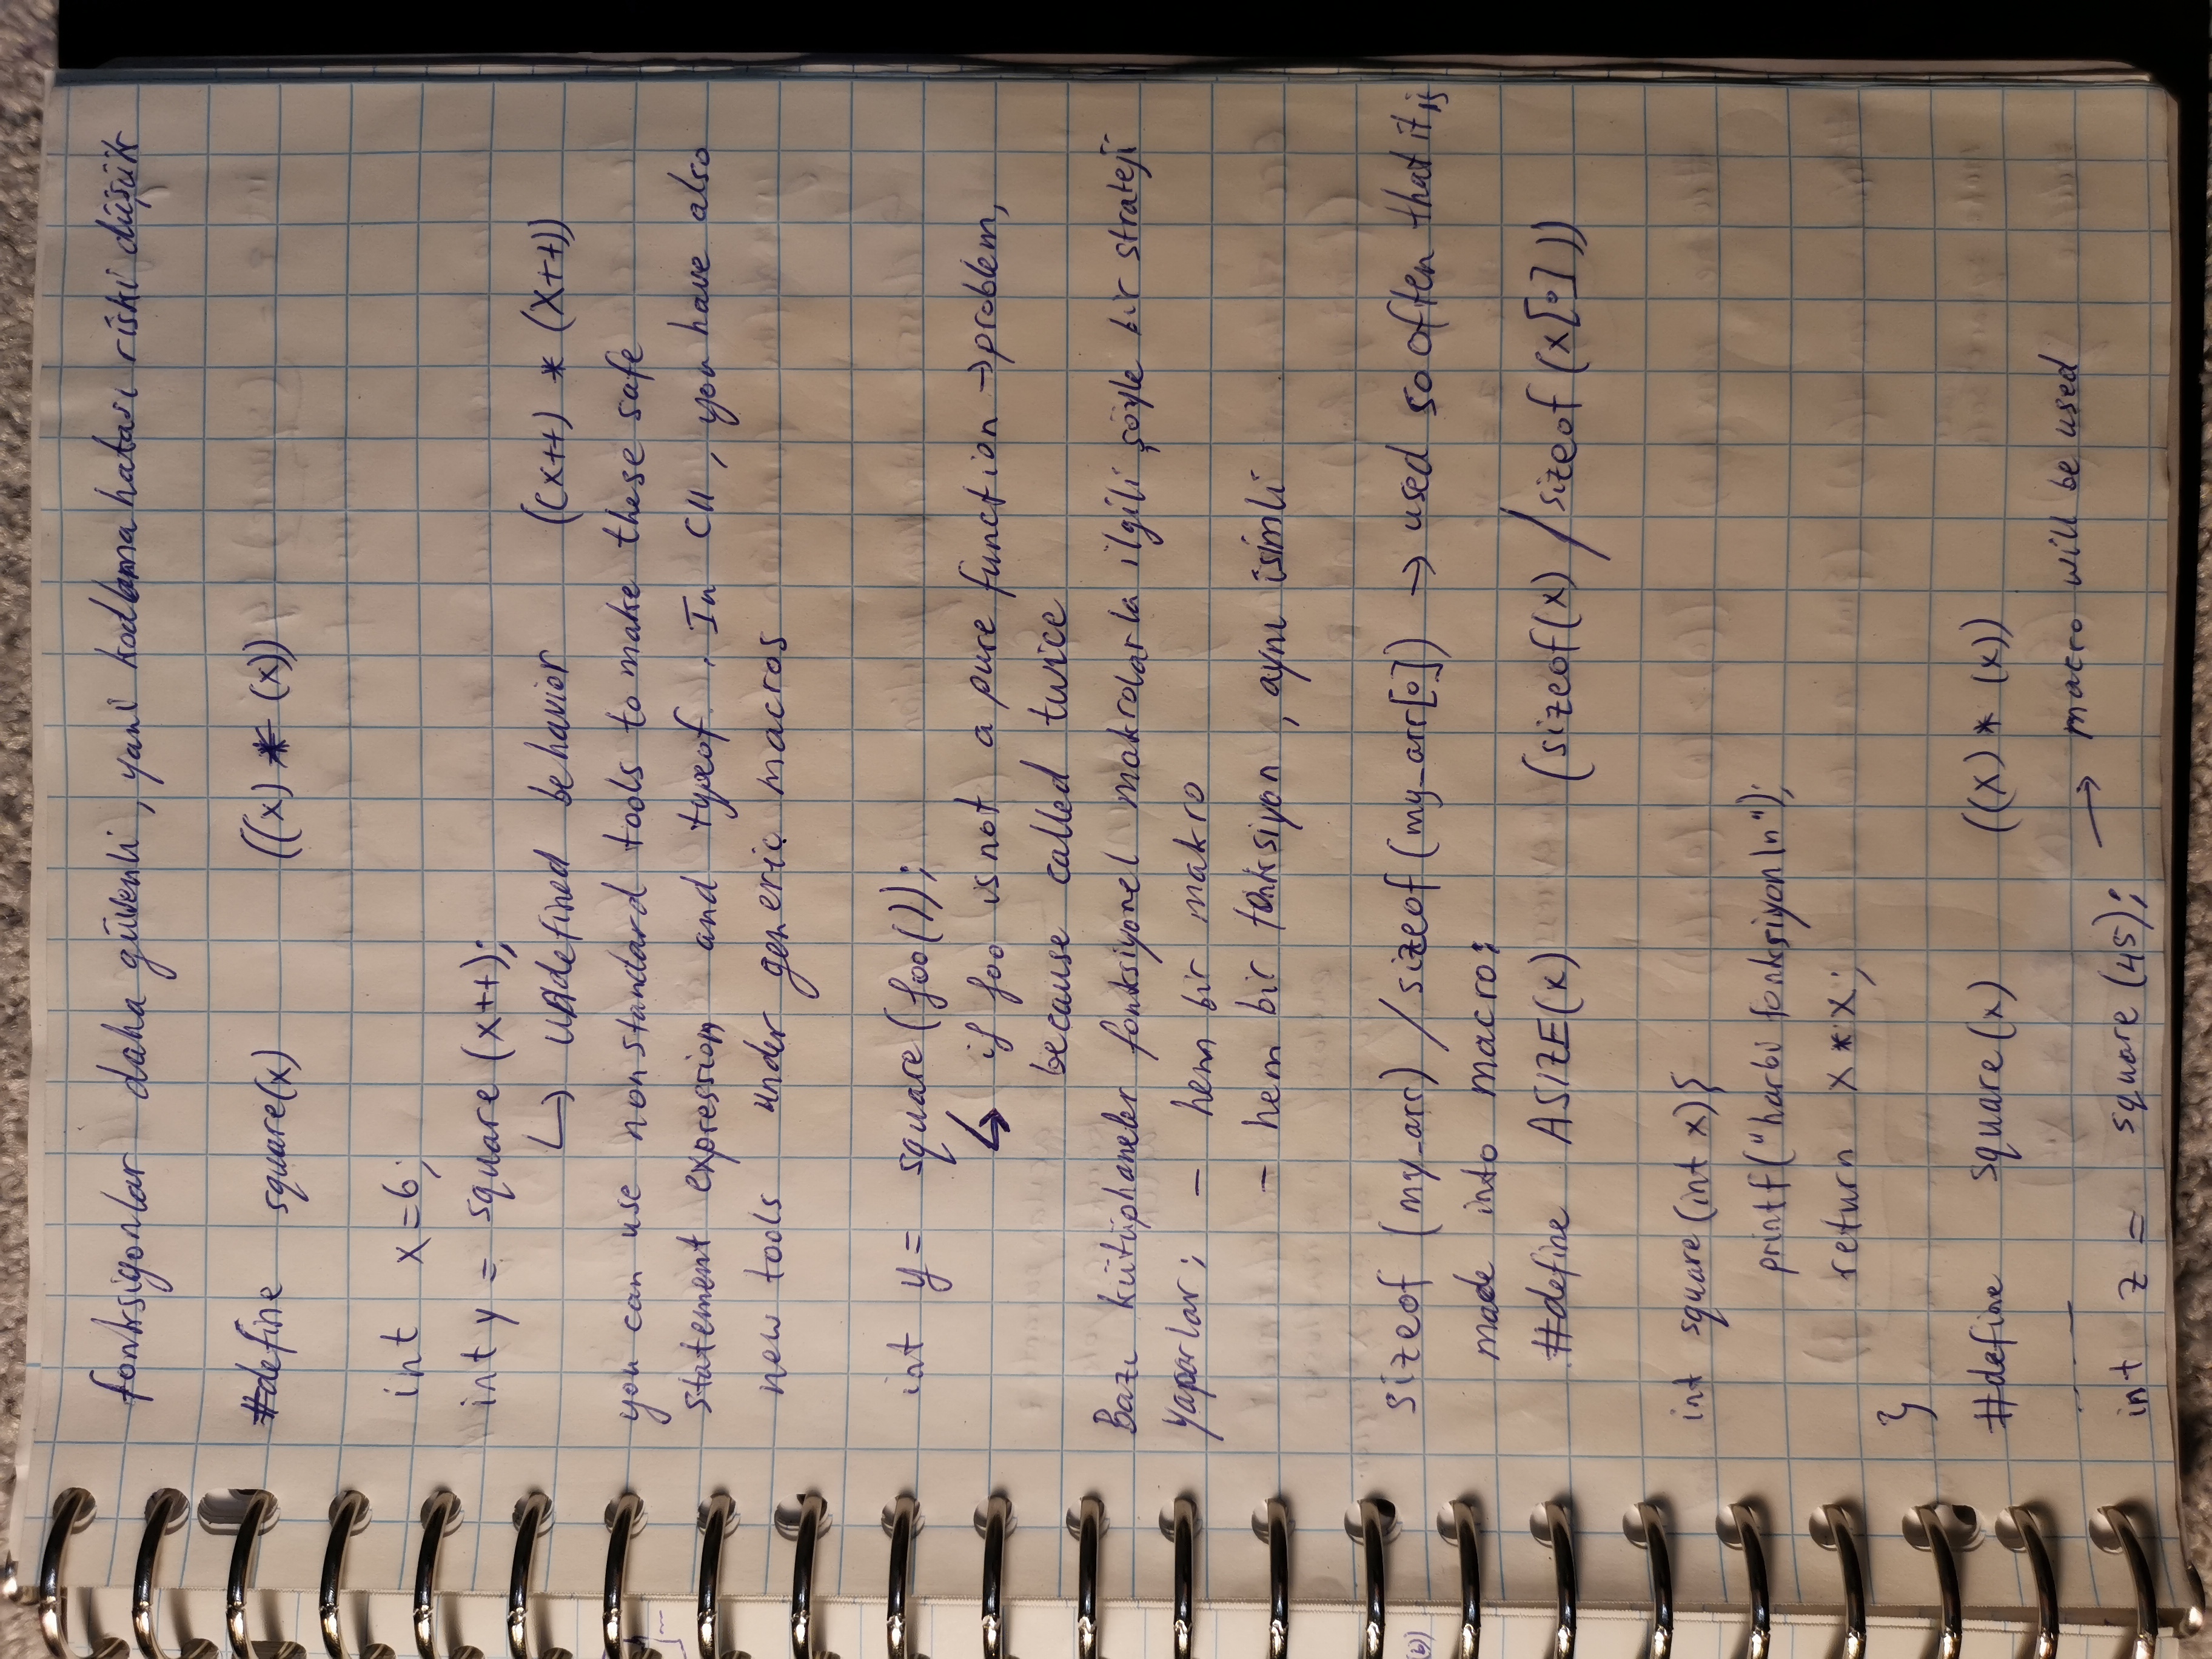 fonksiyonlar daha güvenli, yani kodlama hatası riski düşük
#define square(x) ((x) * (x))
int x=6;
int y = square (x++);
↳ undefined behavior ((x++) * (x++))
you can use nonstandard tools to make these safe
statement expression and typeof. In C11, you have also
new tools under generic macros
int y= square(foo());
↳ if foo is not a pure function →problem,
because called twice
Bazı kütüphaneler fonksiyonel makrolarla ilgili şöyle bir strateji
yaparlar; - hem bir makro
- hem bir fonksiyon, aynı isimli
sizeof (my_arr) / sizeof (my_arr[0]) → used so often that it is
made into macro:
#define ASIZE(x) (sizeof(x) / sizeof (x[0]))
int square(int x){
printf("harbi fonksiyon\n");
return x*x;
}
#define square(x) ((x) * (x))
→ macro will be used
int z = square (45);